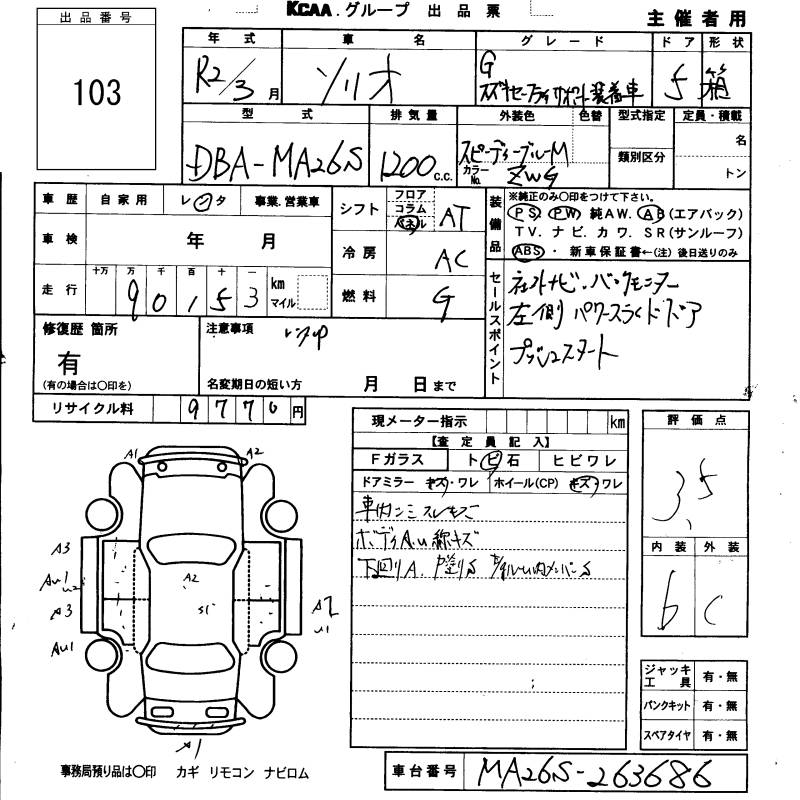 KCAA.グループ 出品票
主催者用
出品番号
103
年式 車名 グレード ドア 形状
R2/3月 ソリオ G スズキセーフティサポート装着車 5 箱
型式 排気量 外装色 色替 型式指定 定員・積載
DBA-MA26S 1200 c.c. スピーディーブルーM
カラーNo. ZWG
類別区分
名
トン
車歴 自家用 レンタ 事業.営業車
シフト フロア コラム パネル AT
車検 年 月
冷房 AC
走行 十万 万 千 百 十 一
9 0 1 5 3 km マイル
燃料 G
装備品 ※純正のみ〇印をつけて下さい。
PS PW 純AW. AB(エアバック)
TV. ナビ. カワ. SR(サンルーフ)
ABS・ 新車保証書←(注)後日送りのみ
セールスポイント
社外ナビ.バックモニター
左側パワースライドドア
プッシュスタート
修復歴 箇所
有
(有の場合は〇印を)
注意事項 レンタUP
名変期日の短い方 月 日まで
リサイクル料 9 7 7 0 円
現メーター指示 km
【査定員記入】
Fガラス トビ石 ヒビワレ
ドアミラー キズ・ワレ ホイール(CP) キズ・ワレ
車内シミスレキズ
ボディA.u線キズ
下回りA.
評価点
3.5
内装 外装
b C
A1 A2
A3
Au1
A2
A3
S1
A2
u1
Au1
A1
ジャッキ工具 有・無
パンクキット 有・無
スペアタイヤ 有・無
事務局預り品は〇印 カギ リモコン ナビロム
車台番号 MA26S-263686